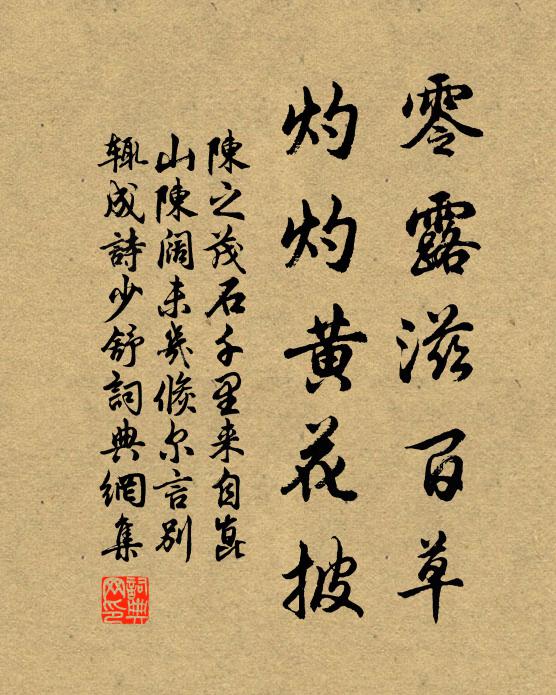 零露滋百草
灼灼黄花披
陳之茂石千里来自崑
山陳阔未幾倐尔言别
輒成詩少舒詞典網集
詞典网印